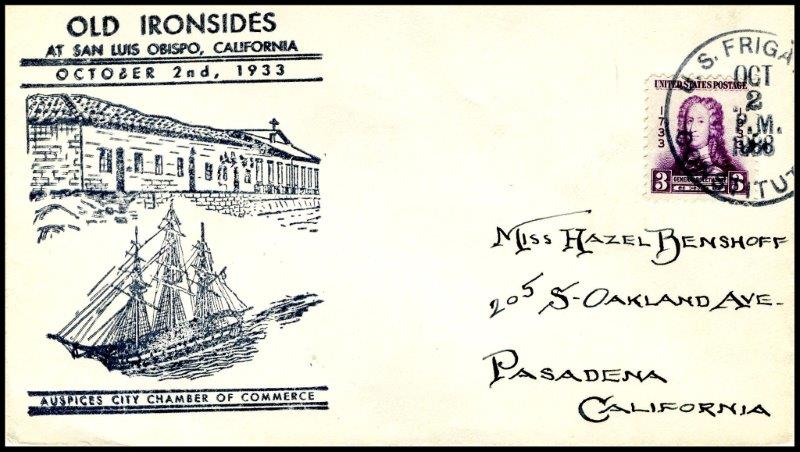 OLD IRONSIDES
AT SAN LUIS OBISPO, CALIFORNIA
OCTOBER 2nd, 1933
AUSPICES CITY CHAMBER OF COMMERCE
U.S. FRIGA
OCT
2
P.M.
TUT
UNITED STATES POSTAGE
1733
3
3
MISS HAZEL BENSHOFF
205 S-OAKLAND AVE-
PASADENA
CALIFORNIA